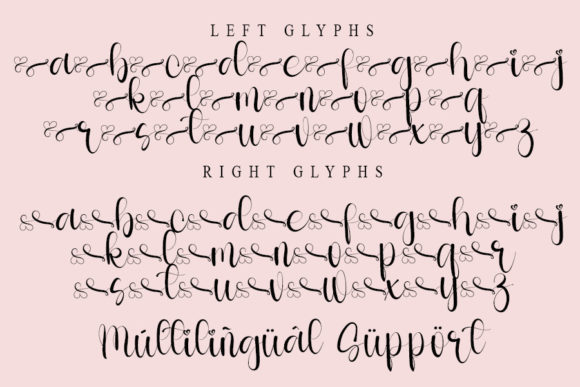 LEFT GLYPHS
a b c d e f g h i j
k l m n o p q
r s t u v w x y z
RIGHT GLYPHS
a b c d e f g h i j
k l m n o p q r
s t u v w x y z
Múltiliñgüál Süppört